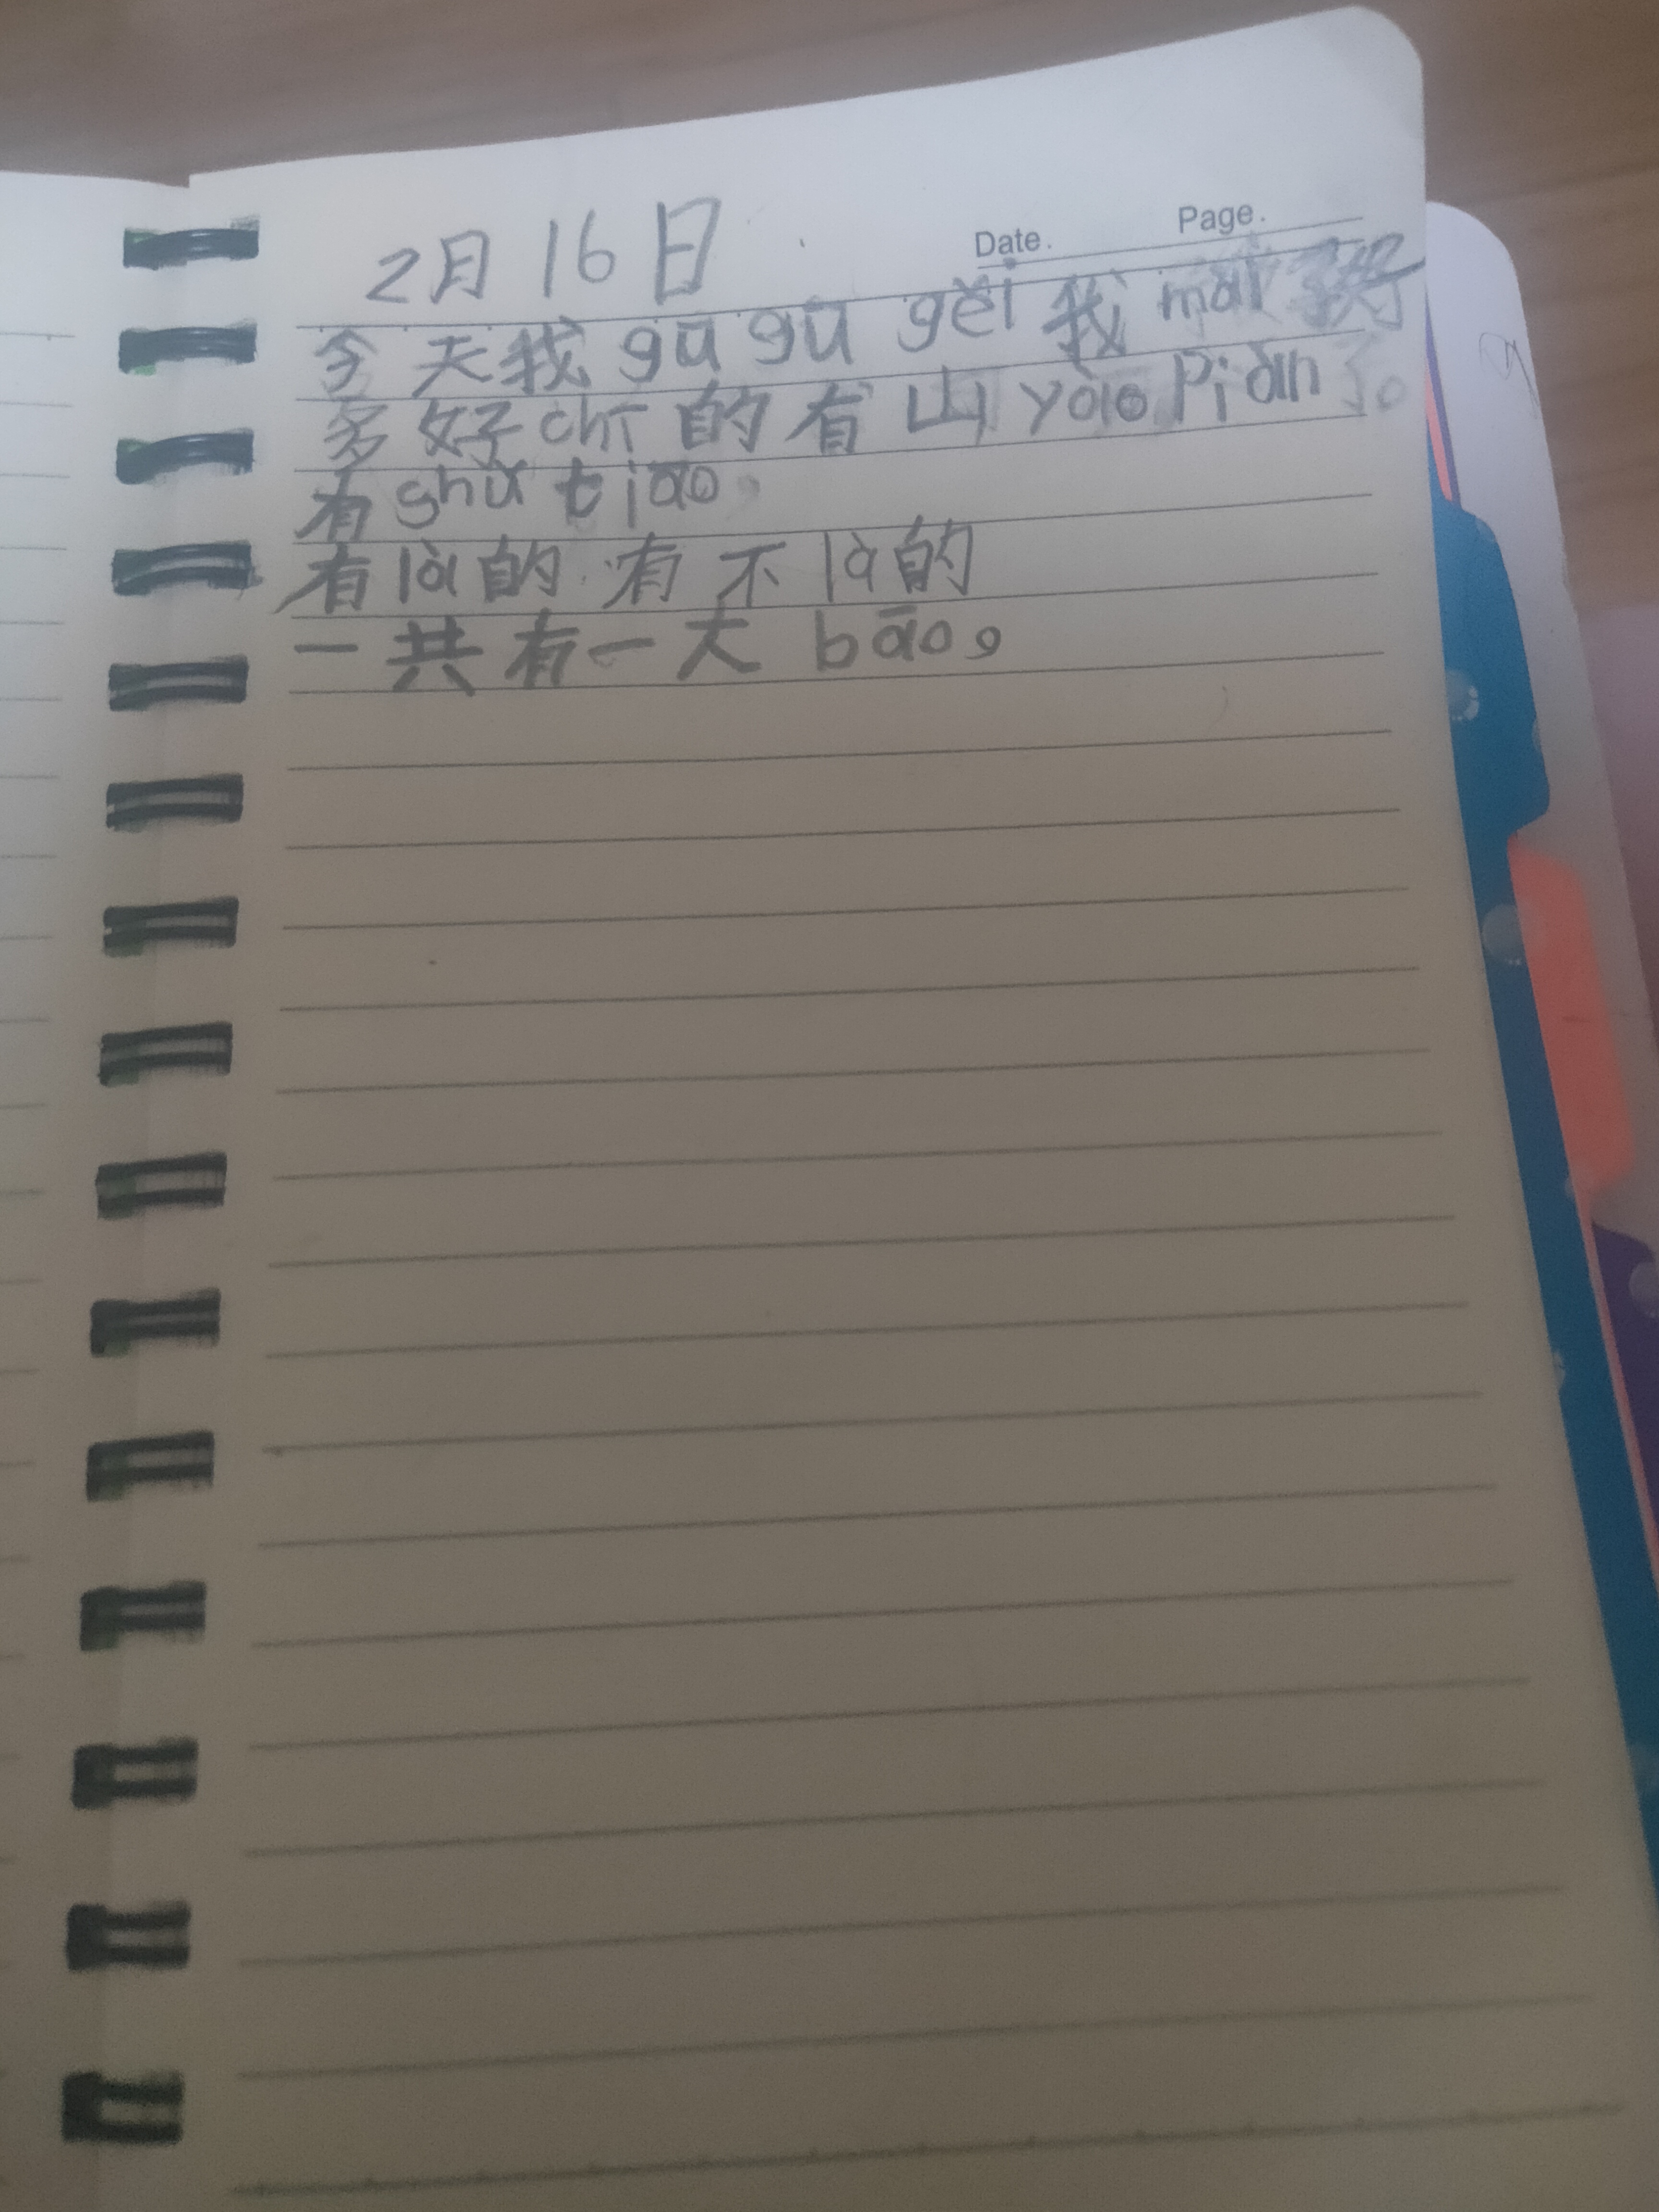 Date. Page.
2月16日
今天我gū gū gěi我mǎi了好
多好chī的有山yào piàn
有shǔ tiáo,
有là的有不là的
一共有一大bāo。